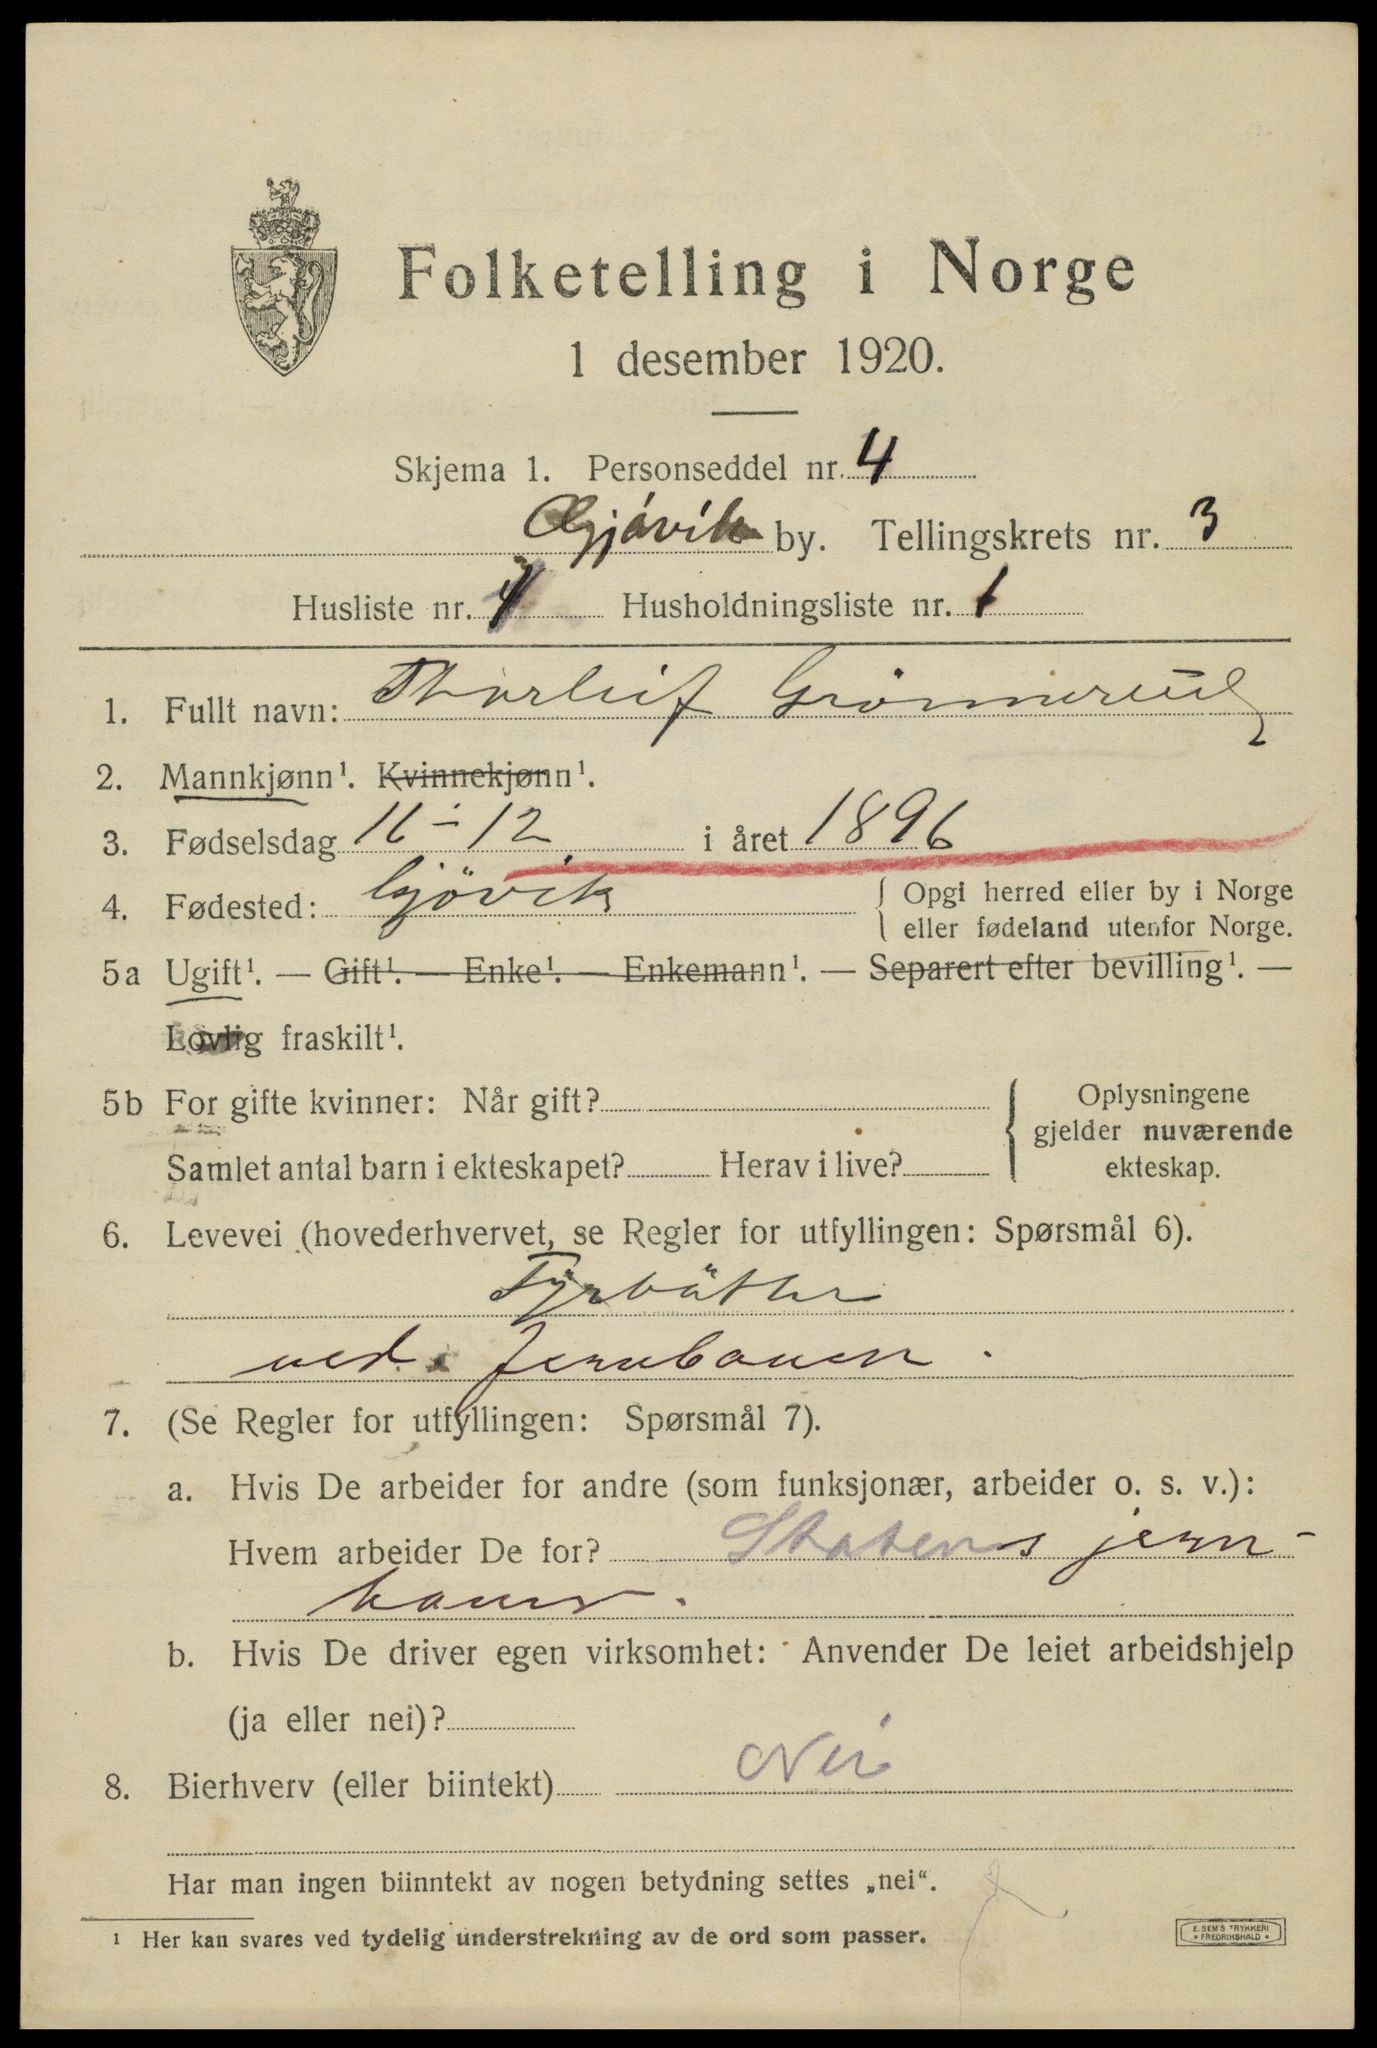 Folketelling i Norge
1 desember 1920.
Skjema 1. Personseddel nr. 4
Gjøvik by. Tellingskrets nr. 3
Husliste nr. 4 Husholdningsliste nr. 1
1. Fullt navn: Thorleif Grønnerud
2. Mannkjønn¹. Kvinnekjønn¹.
3. Fødselsdag 16-12 i året 1896
4. Fødested: Gjövik { Opgi herred eller by i Norge
eller fødeland utenfor Norge.
5a Ugift¹. — Gift¹. — Enke¹. — Enkemann¹. — Separert efter bevilling¹. —
Lovlig fraskilt¹.
5b For gifte kvinner: Når gift? { Oplysningene
gjelder nuværende
Samlet antal barn i ekteskapet? Herav i live? ekteskap.
6. Levevei (hovederhvervet, se Regler for utfyllingen: Spørsmål 6).
Fyrböter
ved Jernbanen.
7. (Se Regler for utfyllingen: Spørsmål 7).
a. Hvis De arbeider for andre (som funksjonær, arbeider o. s. v.):
Hvem arbeider De for? Statens jern-
baner.
b. Hvis De driver egen virksomhet: Anvender De leiet arbeidshjelp
(ja eller nei)?
8. Bierhverv (eller biintekt) Nei
Har man ingen biinntekt av nogen betydning settes „nei“.
¹ Her kan svares ved tydelig understrekning av de ord som passer.
E. SEM'S TRYKKERI
* FREDRIKSHALD *